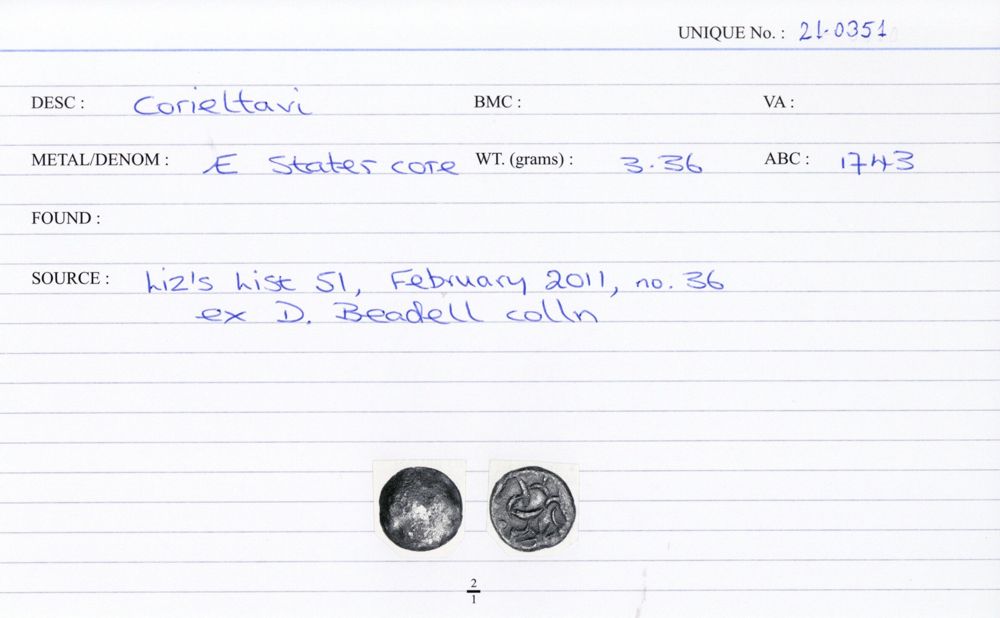 UNIQUE No. : 21-0351
DESC : Corieltavi BMC : VA :
METAL/DENOM : Æ Stater core WT. (grams) : 3.36 ABC : 1743
FOUND :
SOURCE : Liz's List 51, February 2011, no. 36
ex D. Beadell colln
2
1